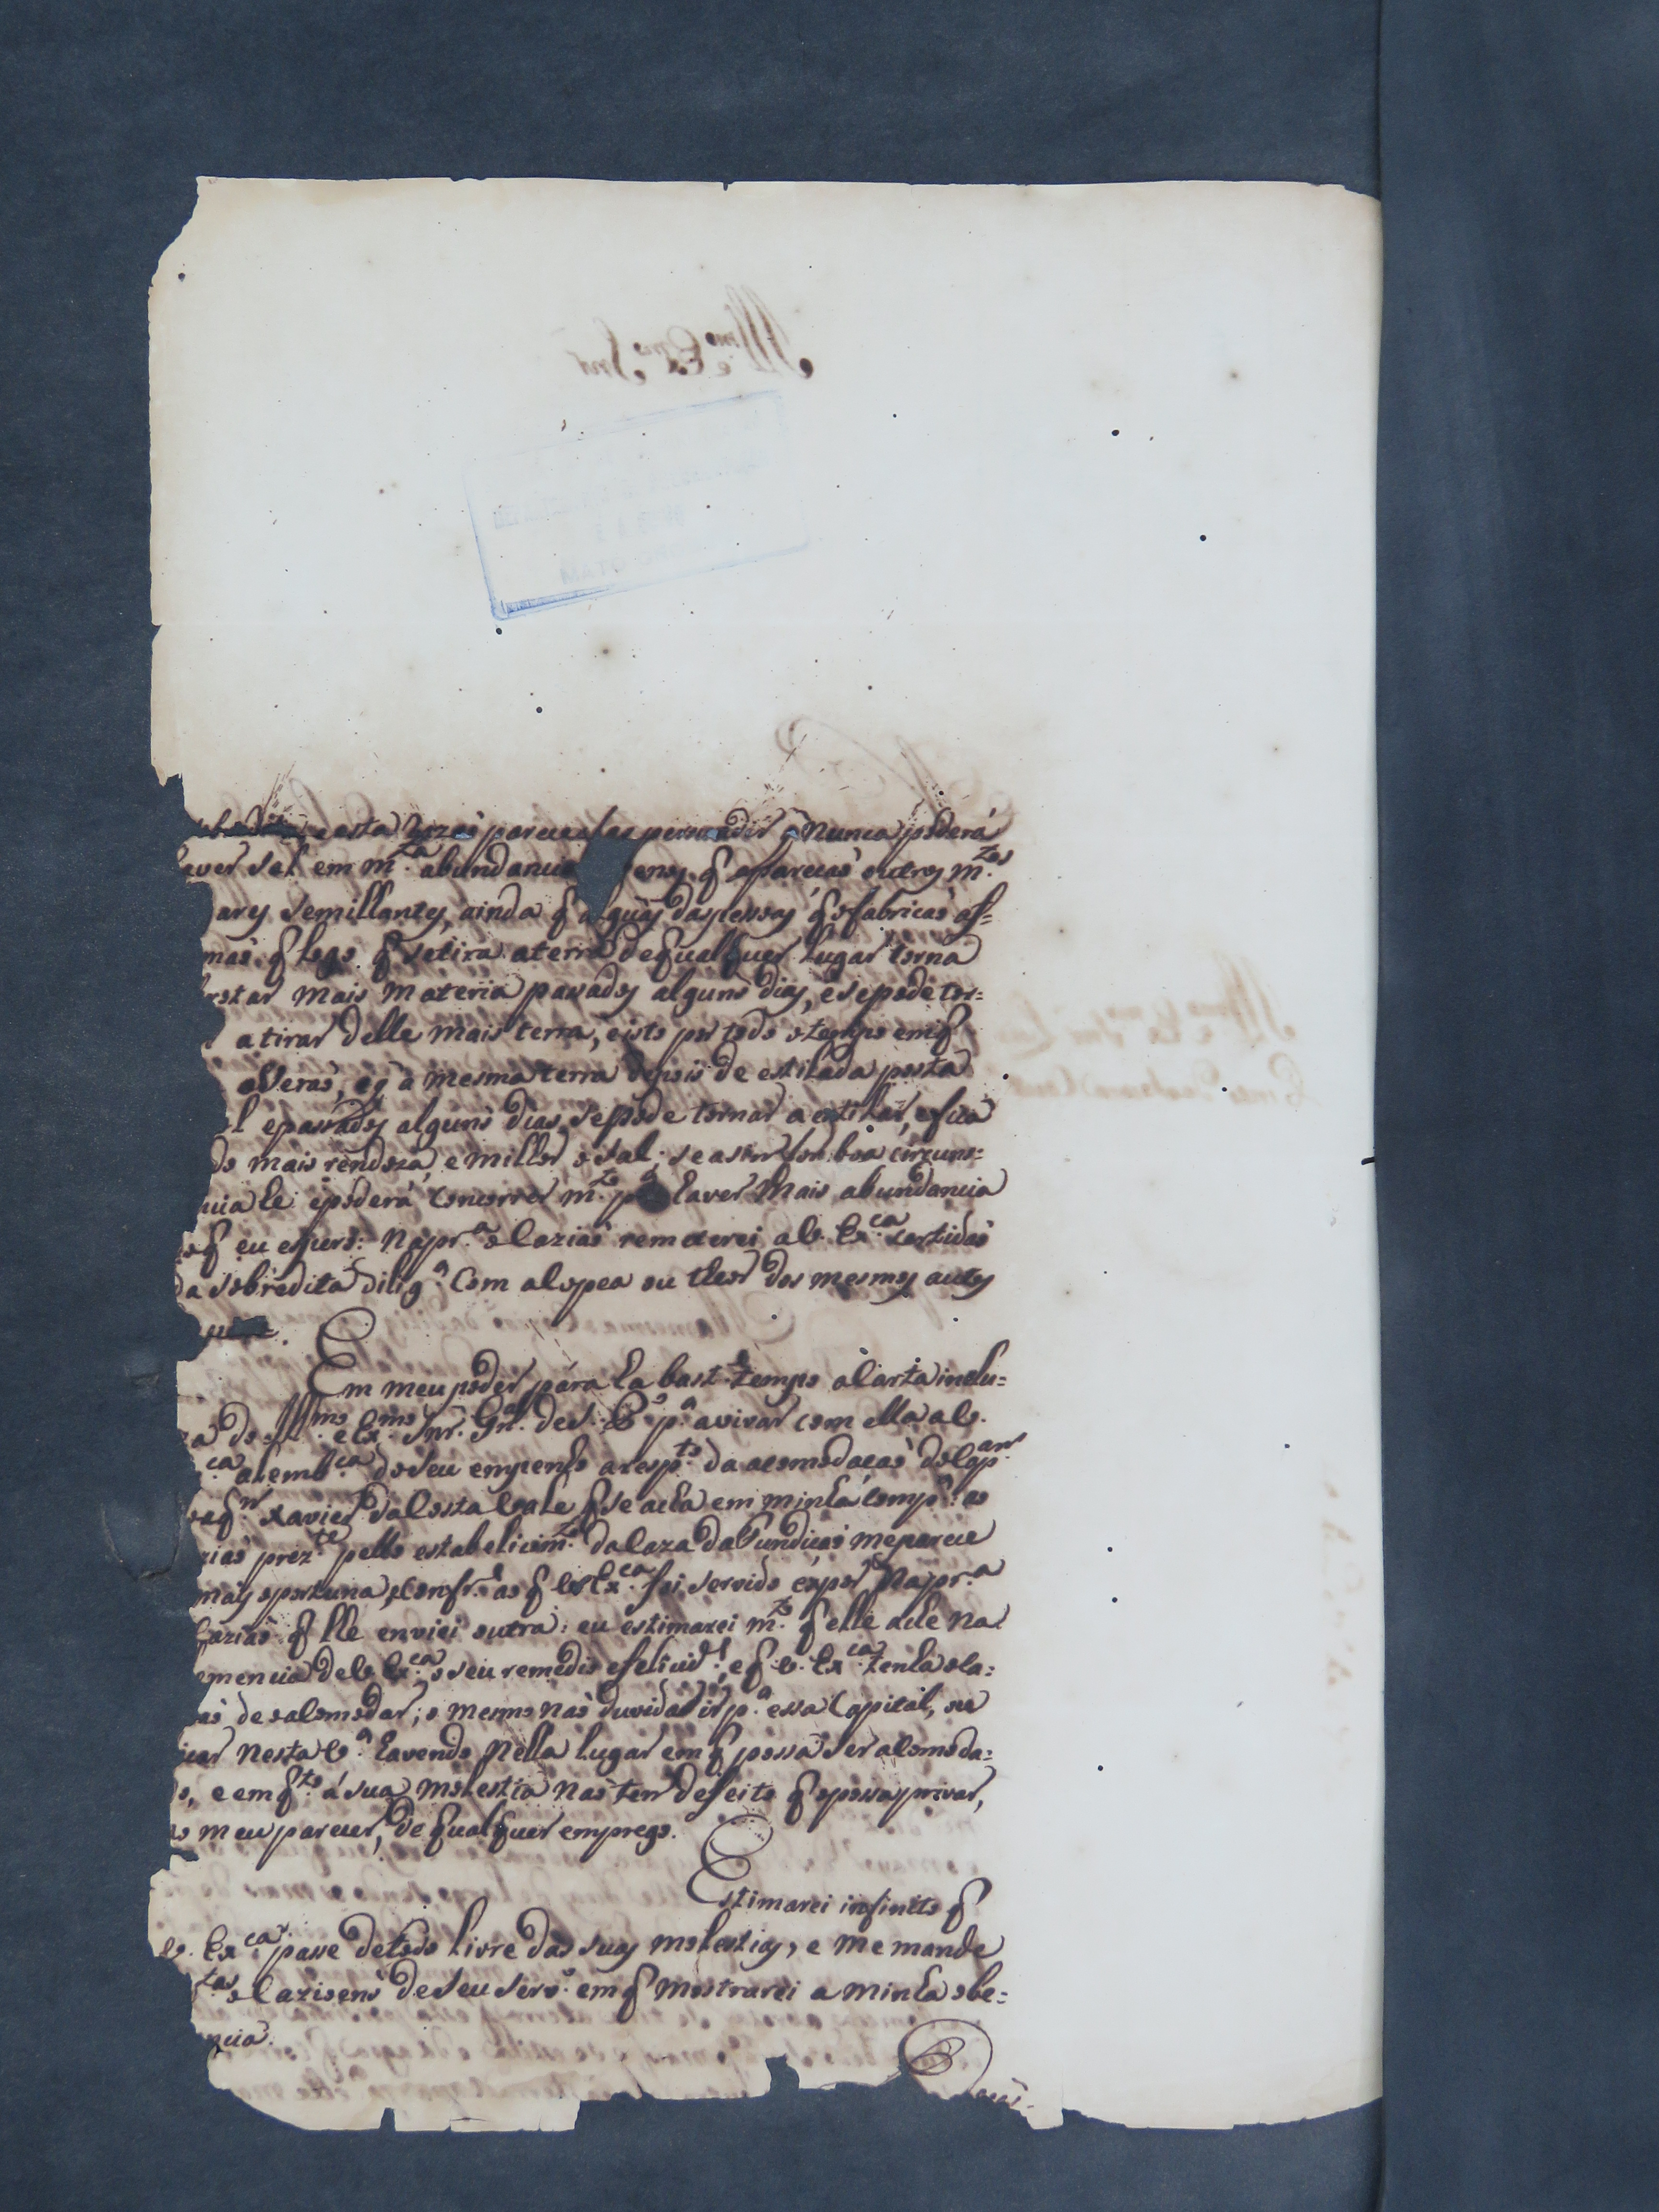 esta razaõ pareceme persuadir q̃ Nunca poderá
aver sal em m.ta abundancia q̃ apareçaõ outros m.tos
ares semilhantes, ainda q̃ alguãs das pessoas q̃ o fabricaõ af=
maõ q̃ logo q̃ setira aterra de qualquer Lugar torna
brotar mais materia passados alguns dias, e sepode tor=
atirar delle mais terra, eisto por todo otempo emq̃
eq̃ a mesma terra depois de estilada posta
l epassados alguns dias sepode tornar a estilar, efica
do mais rendoza, e milhor osal; se asim for boa circuns=
ncia he epoderá concorrer m.to p.a haver Mais abundancia
oq̃ eu espero: Napr.a ocaziaõ remeterei aV. Ex.ca certidaõ
da sobredita dilig.a Com acopea ou theor dos mesmos autos

Em meu poder pára ha bast.e tempo acarta inclu=
za do Ill.mo eEx.mo Snr. Gn.al de S. P.o p.a avivar com ella aV.
ca alemb.ca do seu empenho aresp.to da acomodacaõ do Cap.am
Xavier da Costa Vale q̃ se acha em minha comp.a: ao
ziaõ prez.te pello estabelicim.to da Caza da Fundicaõ meparece
mais oportuna, eConfr.e ao q̃ V. Ex.ca foi servido expor Napr.a
Caziaõ q̃ lhe enviei outra: eu estimarei m.to q̃ elle ache na
clemencia deV. Ex.ca o seu remedio efelicid.e, eq̃ V. Ex.ca tenha oca=
aõ deacomodar; o mesmo naõ duvida ir p.a essa Capital, ou
ficar nesta V.a havendo Nella lugar em q̃ possa ser acomoda=
do, e emq̃.to á sua molestia naõ tem defeito q̃ opossa privar,
ao meu parecer, de qualquer emprego.
Estimarei infinito q̃
V. Ex.ca passe detodo livre das suas molestias, e me mande
tas ocazioens de seu serv.o em q̃ mostrarei a minha obe=
encia.